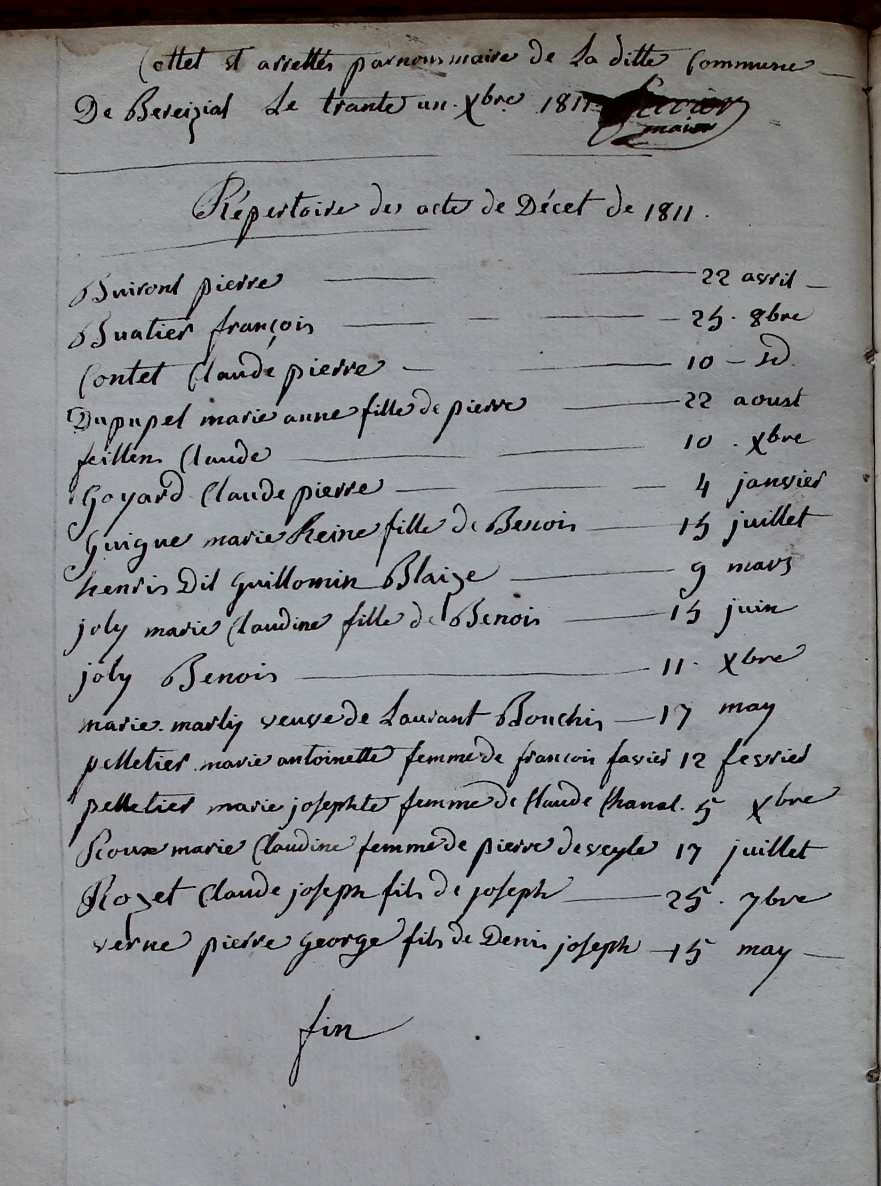 Cottet et arrettés par nous maire de La ditte Commune
De Bereizial Le trante un. Xbre 1811
maire
Répertoire des acte de Décet de 1811.
Buiront pierre 22 avril
Buatier françois 25. 8bre
Contet Claude pierre 10 - id
Dupupel marie anne fille de pierre 22 aoust
feillens Claude 10. Xbre
Goyard Claude pierre 4 janvier
Guigue marie Reine fille de Benois 15 juillet
henris Dit Guillomin Blaize 9 mars
joly marie Claudine fille de Benois 15 juin
joly Benois 11. Xbre
marie. marliy veuve de Laurant Bouchis 17 may
pelletier. marie antoinette femme de francois favier 12 fevrier
pelletier marie josephte femme de Claude Chanel. 5 Xbre
Roux marie Claudine femme de pierre deveyle 17 juillet
Rozet Claude joseph fils de joseph 25. 7bre
verne pierre George fils de Denis joseph 15 may
fin